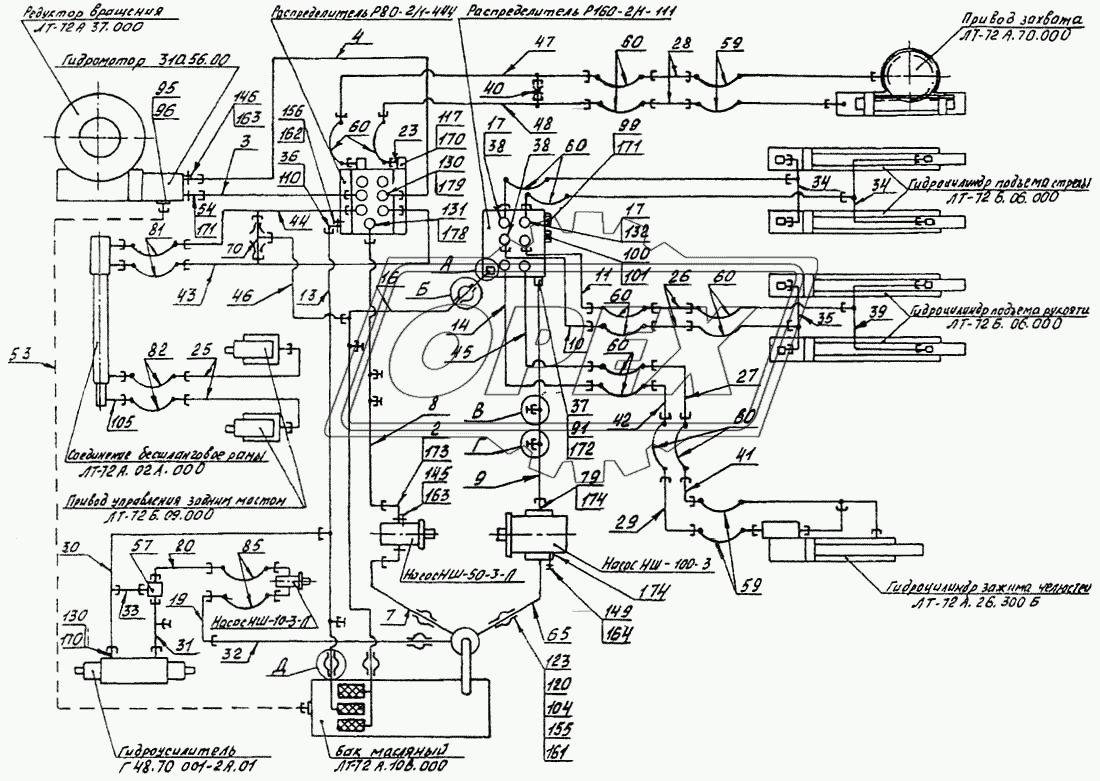 Редуктор вращения
ЛТ-72А 37.000
Распределитель Р80-2/1-444
Распределитель Р160-2/1-111
Привод захвата
ЛТ-72 А.70.000
Гидромотор 310.56.00
4
47
60
28
59
95
96
145
163
3
156
162
36
110
60
23
117
170
130
179
131
178
17
38
38
60
99
171
40
48
34
34
Гидроцилиндр подъема стрелы
ЛТ-72 Б.06.000
54
171
44
81
70
43
46
13
16
А
Б
14
45
17
132
100
101
11
60
26
60
10
60
35
39
Гидроцилиндр подъема рукояти
ЛТ-72 Б.06.000
53
82
25
105
Соединение бесшланговое рамы
ЛТ-72 А.02А.000
Привод управления задним мостом
ЛТ-72 Б.09.000
8
2
173
145
163
В
Г
9
37
91
172
79
174
42
27
80
41
29
59
Насос НШ-50-3-Л
Насос НШ-100-3
174
149
164
Гидроцилиндр зажима челюстей
ЛТ-72 А.26.300 Б
30
57
20
85
33
19
Насос НШ-10-3-Л
130
170
31
32
Д
7
65
123
120
104
155
161
Гидроусилитель
Г 48.70 001-2А.01
Бак масляный
ЛТ-72 А.10В.000
ОРЕХ